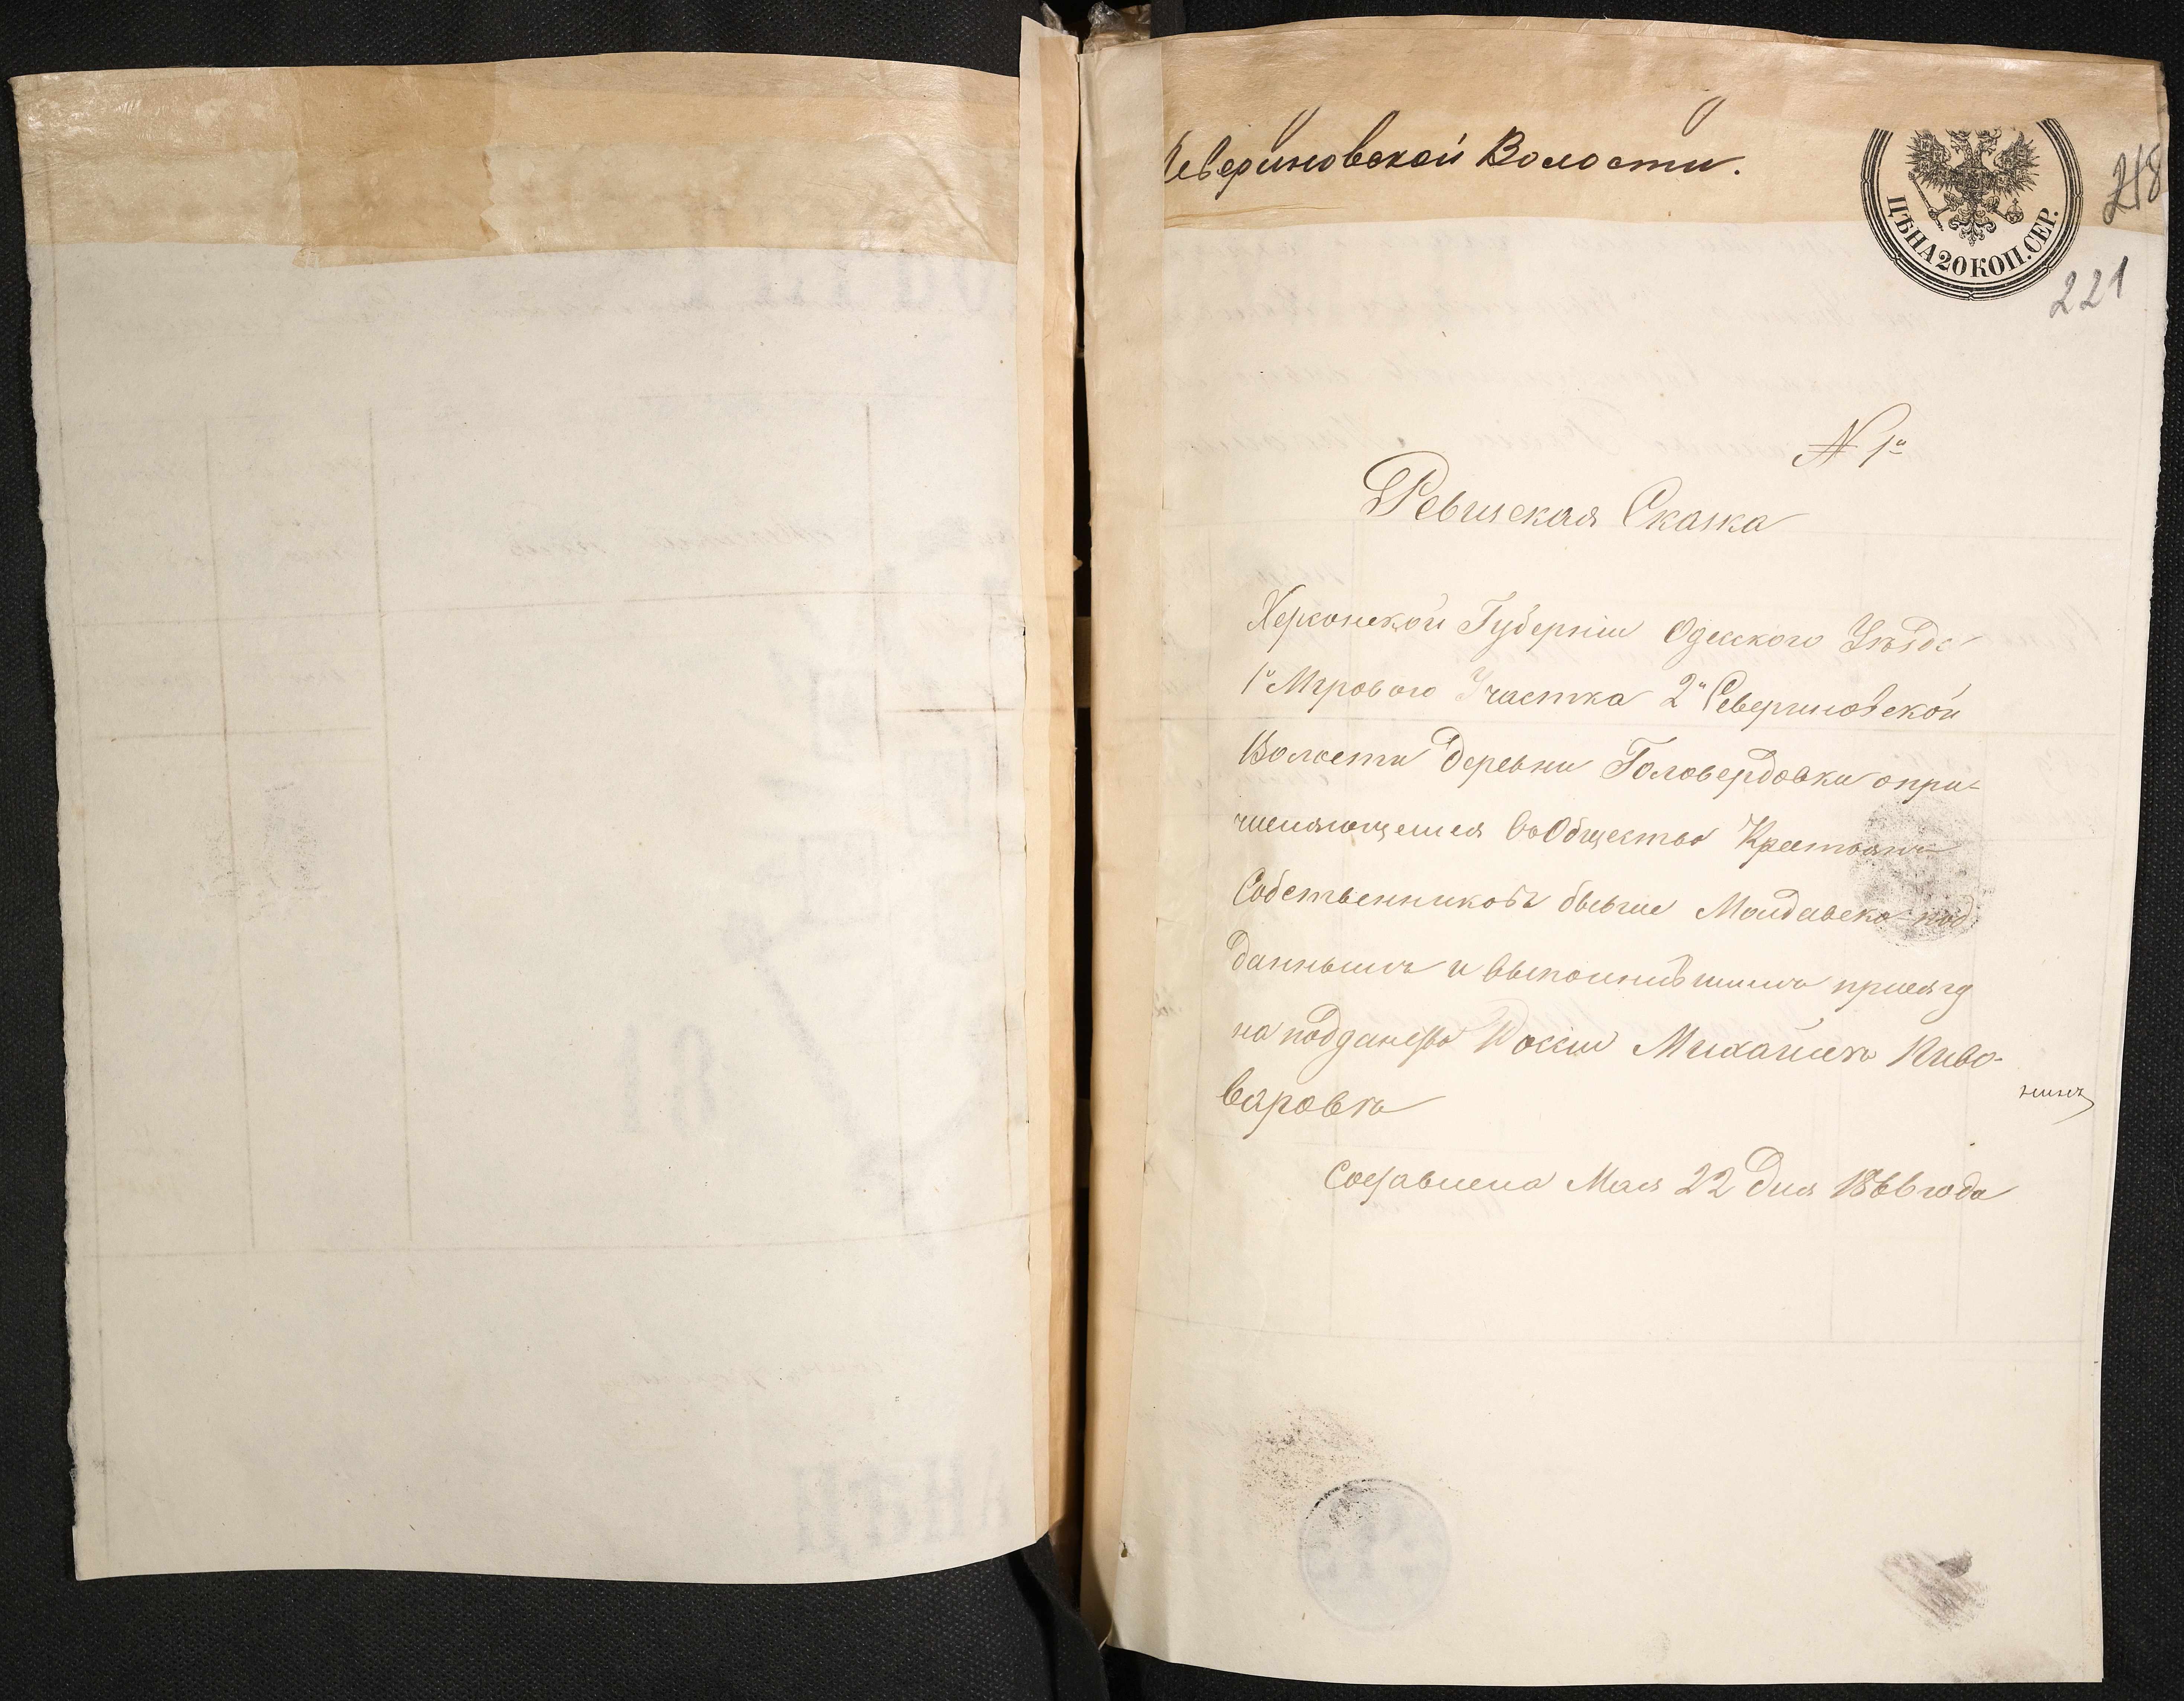 Севериновской Волости.
ЦѢНА 20 КОП. СЕР.
218
221
№ 1й
Ревизская Сказка
Херсонской Губерніи Одесского Уѣзда
1го Мирового Участка 2й Севериновской
Волости Деревни Головердовки о при-
числяющемся въ Общество Крестьянъ
Собственниковъ бывше Молдавско-под
даннымъ и выполнившимъ присягу
на подданство Россіи Михайлѣ Пиво-
варовѣ
нимъ
Составлена Мая 22 Дня 1866 года